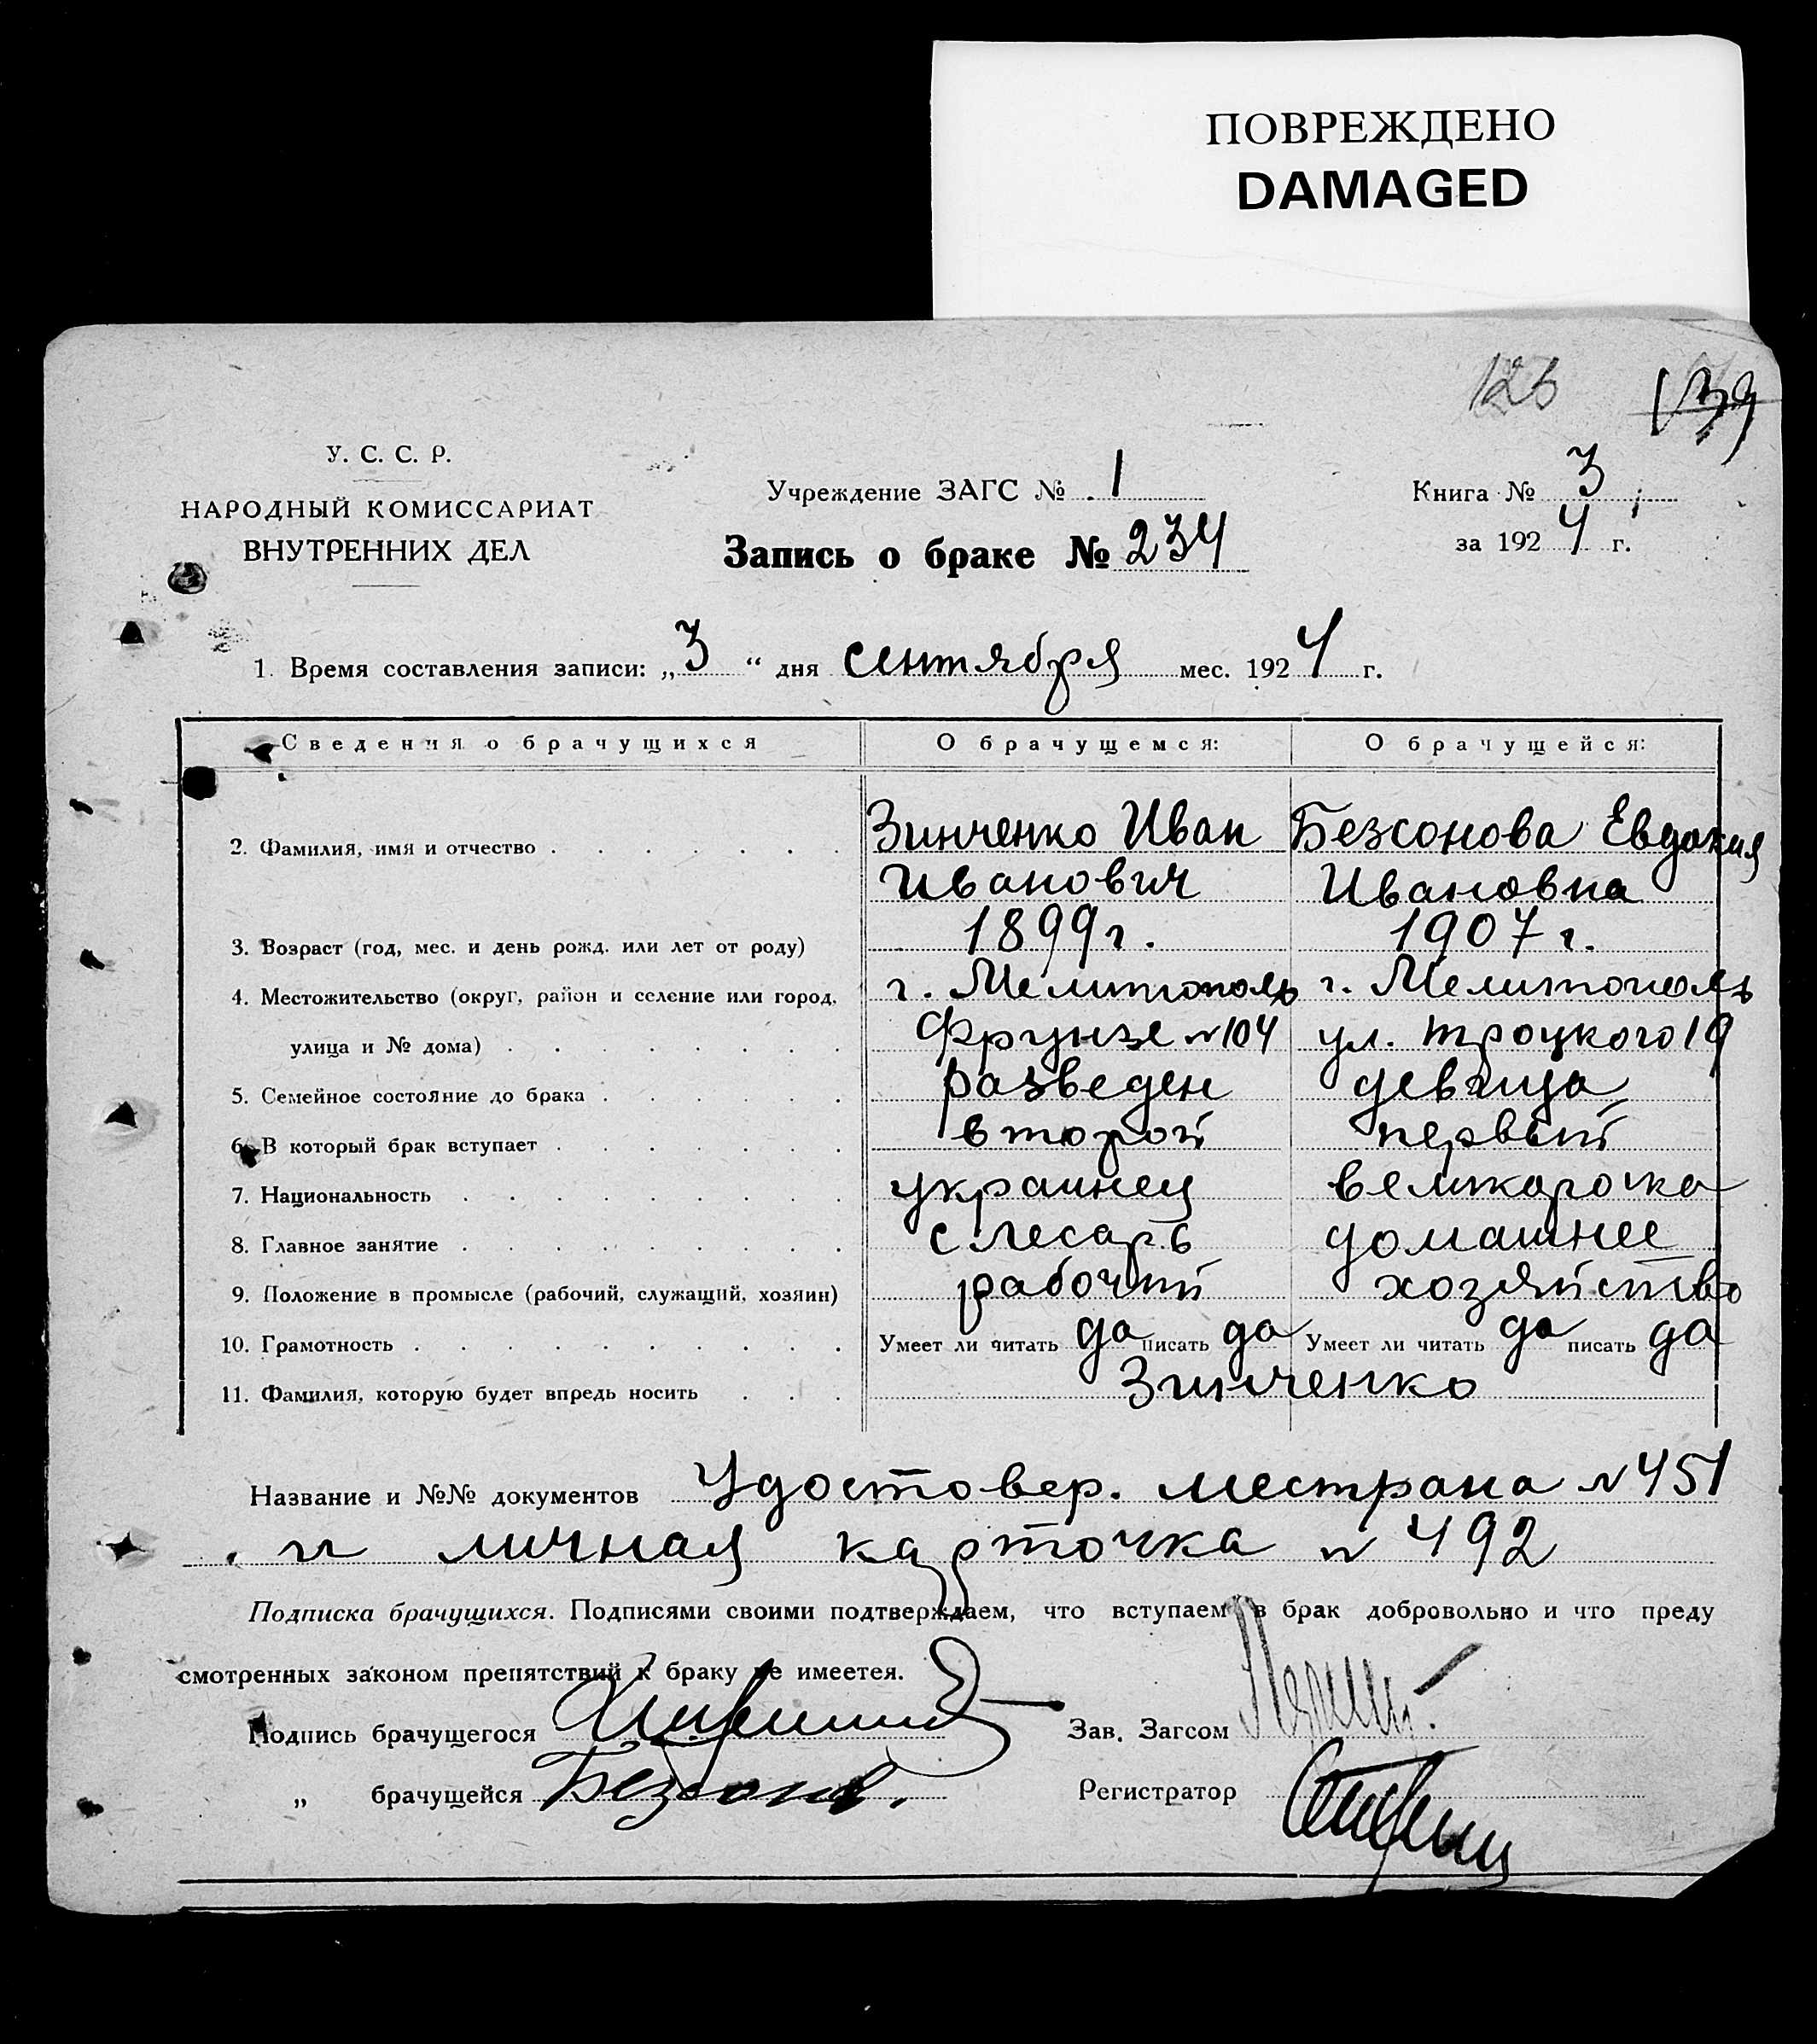 ПОВРЕЖДЕНО
DAMAGED
123 139
У. С. С. Р.
НАРОДНЫЙ КОМИССАРИАТ
ВНУТРЕННИХ ДЕЛ
Учреждение ЗАГС № 1
Запись о браке № 234
Книга № 3
за 1924 г.
1. Время составления записи: „3“ дня сентября мес. 1924 г.
Сведения о брачущихся О брачущемся: О брачущейся:
2. Фамилия, имя и отчество Зинченко Иван Безсонова Евдокия
Иванович Ивановна
3. Возраст (год, мес. и день рожд. или лет от роду) 1899 г. 1907 г.
4. Местожительство (округ, район и селение или город, г. Мелитополь г. Мелитополь
улица и № дома) Фрунзе №104 ул. Троцкого 19
5. Семейное состояние до брака разведен девица
6. В который брак вступает второй первый
7. Национальность украинец великороска
8. Главное занятие слесарь домашнее
9. Положение в промысле (рабочий, служащий, хозяин) рабочий хозяйство
10. Грамотность Умеет ли читать да писать да Умеет ли читать да писать да
11. Фамилия, которую будет впредь носить Зинченко
Название и №№ документов Удостовер. местрана №451
и личная карточка № 492
Подписка брачущихся. Подписями своими подтверждаем, что вступаем в брак добровольно и что преду
смотренных законом препятствий к браку не имеетея.
Подпись брачущегося
Зав. Загсом
„ брачущейся Безсонов.
Регистратор